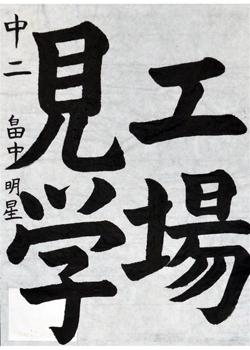 工場
見学
中二 畠中明星